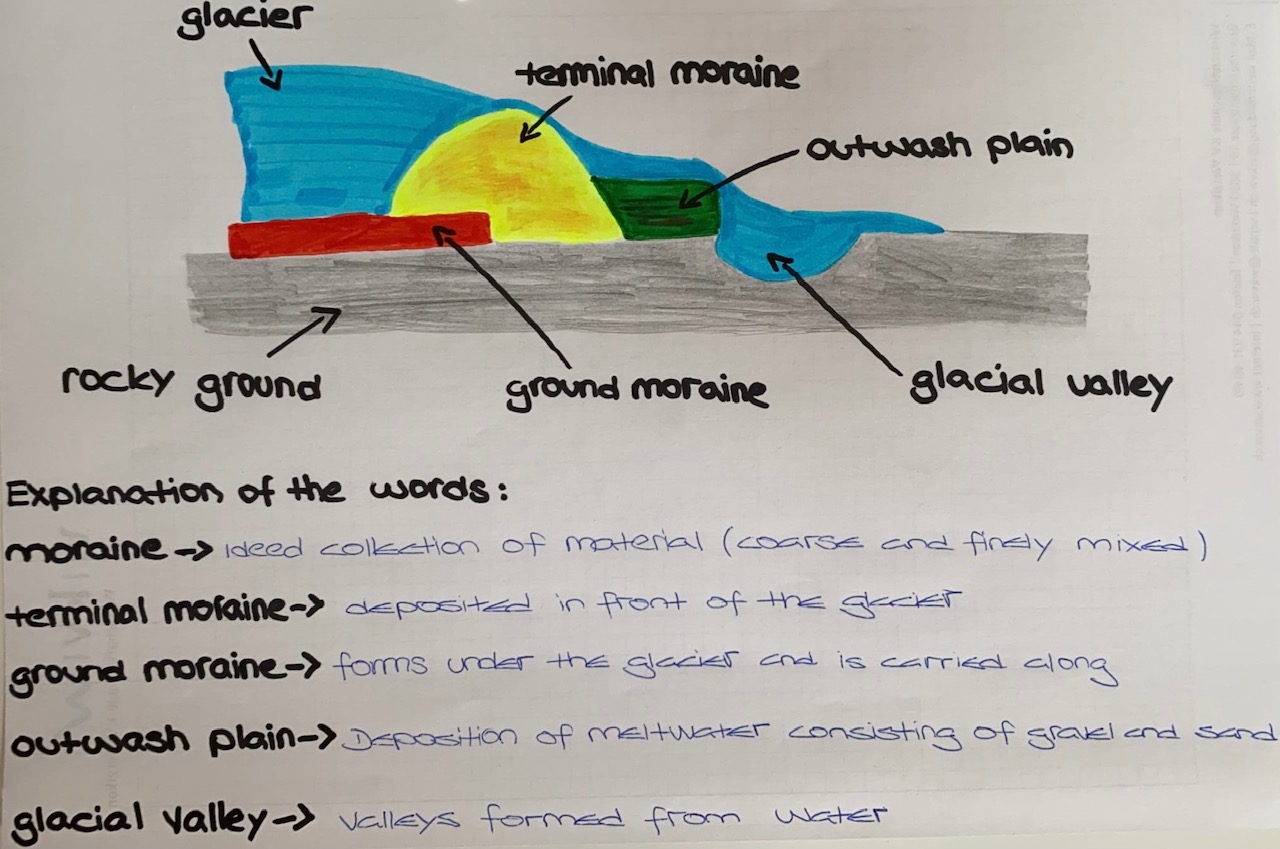 glacier
terminal moraine
outwash plain
rocky ground
ground moraine
glacial valley
Explanation of the words:
moraine -> ideed collection of material (coarse and finely mixed)
terminal moraine-> deposited in front of the glacier
ground moraine-> forms under the glacier and is carried along
outwash plain-> Deposition of meltwater consisting of gravel and sand
glacial valley-> valleys formed from water